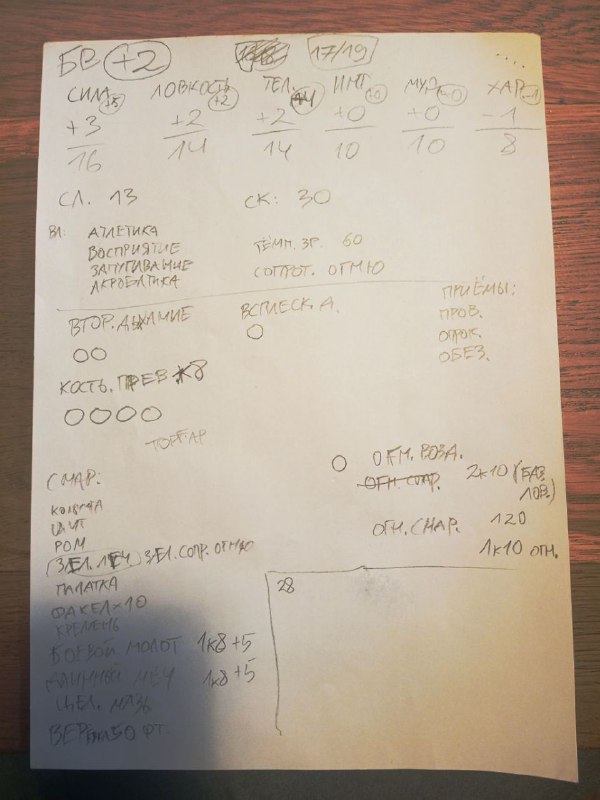 БВ +2 17/19
СИЛА +5 ЛОВКОСТЬ +2 ТЕЛ. +4 ИНТ +0 МУД +0 ХАР -1
+3 +2 +2 +0 +0 -1
16 14 14 10 10 8
СЛ. 13 СК: 30
ВЛ: АТЛЕТИКА
ВОСПРИЯТИЕ
ЗАПУГИВАНИЕ
АКРОБАТИКА
ТЁМН. ЗР. 60
СОПРОТ. ОГНЮ
ВТОР. ДЫХАНИЕ
ВСПЛЕСК Д.
ПРИЁМЫ:
ПРОВ.
ОПРОК.
ОБЕЗ.
КОСТЬ. ПРЕВ К8
ТОРГАР
СНАР:
КОЛЬЧУГА
ЩИТ
РОМ
(ЗЕЛ. ЛЕЧ.) ЗЕЛ. СОПР. ОГНЮ
ПАЛАТКА
ФАКЕЛ×10
КРЕМЕНЬ
БОЕВОЙ МОЛОТ 1К8+5
ДЛИННЫЙ МЕЧ 1К8+5
ЦЕЛ. МАЗЬ
ВЕРЕВКА 50 ФТ.
ОГН. ВОЗД.
ОГН. СНАР. 2К10 (БАЗ.
ЛОВ.)
ОГН. СНАР. 120
1К10 ОГН.
28